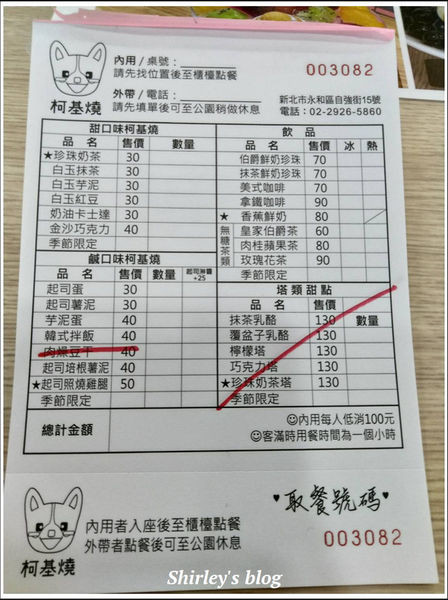 內用 / 桌號：
請先找位置後至櫃檯點餐
003082
外帶 / 電話：
請先填單後可至公園稍做休息
新北市永和區自強街15號
電話：02-2926-5860
柯基燒
甜口味柯基燒
品 名 售價 數量
★珍珠奶茶 30
白玉抹茶 30
白玉芋泥 30
白玉紅豆 30
奶油卡士達 30
金沙巧克力 40
季節限定
鹹口味柯基燒
品 名 售價 數量 起司淋醬+25
起司蛋 30
起司薯泥 30
芋泥蛋 40
韓式拌飯 40
肉燥豆干 40
起司培根薯泥 40
★起司照燒雞腿 50
季節限定
飲 品
品 名 售價 冰 熱
伯爵鮮奶珍珠 70
抹茶鮮奶珍珠 70
美式咖啡 70
拿鐵咖啡 90
★ 香蕉鮮奶 80
無糖茶類
皇家伯爵茶 60
肉桂蘋果茶 80
玫瑰花茶 90
季節限定
塔類甜點
品 名 售價 數量
抹茶乳酪 130
覆盆子乳酪 130
檸檬塔 130
巧克力塔 130
★珍珠奶茶塔 130
季節限定
總計金額
內用每人低消100元
客滿時用餐時間為一個小時
內用者入座後至櫃檯點餐
外帶者點餐後可至公園休息
柯基燒
♥取餐號碼♥
003082
Shirley's blog